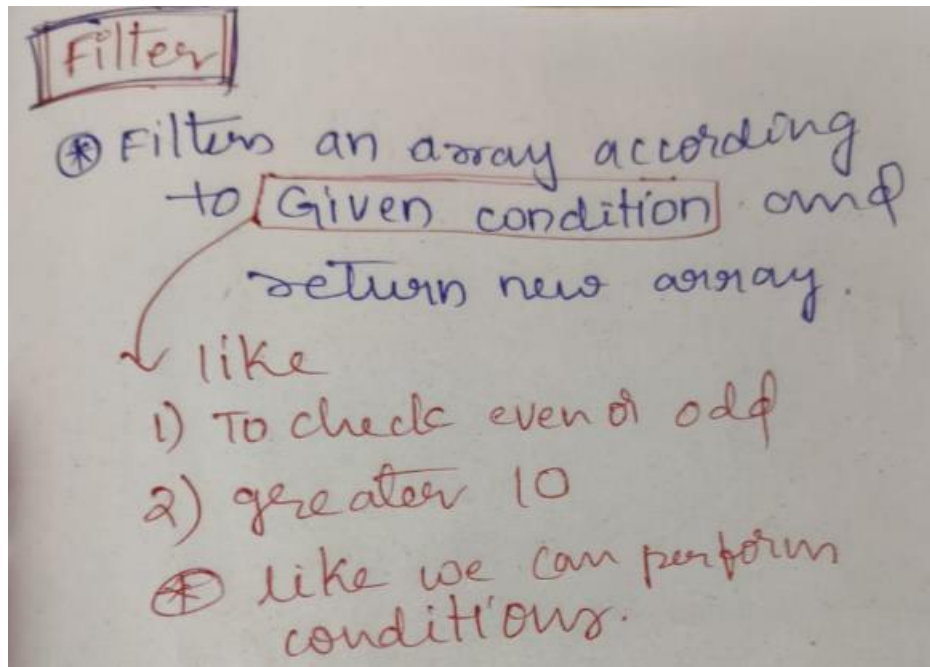 Filter
⊛ Filters an array according
to Given condition and
return new array.
like
1) To check even or odd
2) greater 10
⊛ like we can perform
conditions.